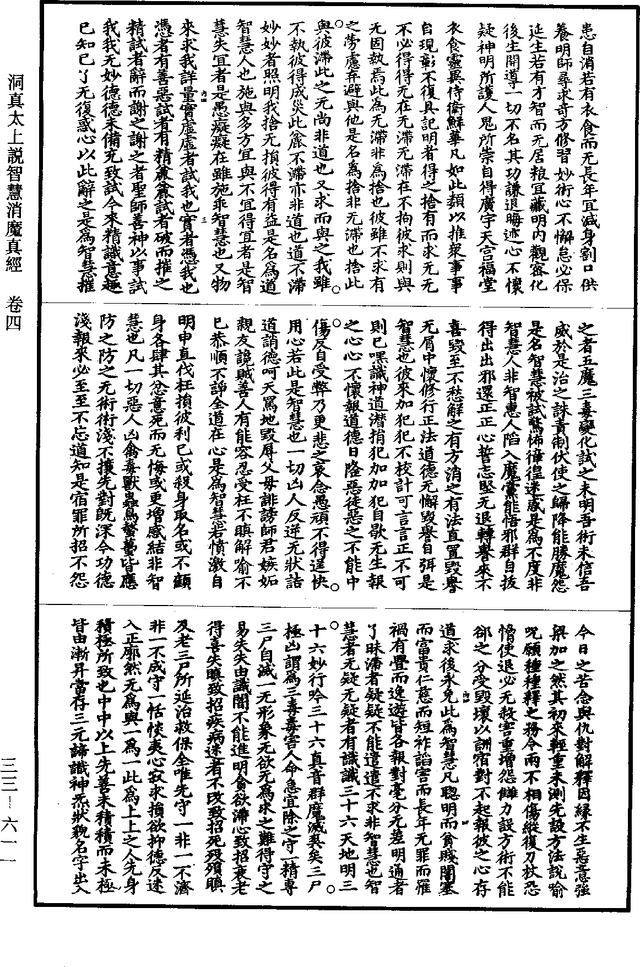 患自消若有衣食而无長年宜減身割口供
養明師尋求奇方修習妙術心不懈怠必保
延生若有才智而无居粮宜藏明内觀密化
後生開導一切不名其功謙退晦迹心不懷
疑神明所護人鬼所崇自得廣宇天宫福堂
衣食靈異侍衛鮮華凡如此類以推衆事事
自現彰不復具記明者得之捨有而求无无
不必得得无在无滞无滞在不拘彼求則與
无固執焉此為无滞非為捨也彼雖不求有
之勞慮弃避與他是名為捨非无滞也捨此
與彼滞此之无尚非道也又求而與之我雖
不執彼得成災此雖不滞亦非道也道不滞
妙妙者照明我捨无損彼得有益是名為道
智慧人也施與多方宜與不宜得宜者是智
慧失宜者是愚癡癡在雖施乖智慧也又物
來求我詳量實虚虚者試我也實者憑我也
憑者有善惡試者有精麤麤試者破而摧之
精試者辭而謝之謝之者聖師善神以事試
我我无妙德德未備充致試今來精識意趣
已知已了无復惑心以此辭之是為智慧推
之者五魔三毒變化試之未明吾術未信吾
威於是治之誅責制伏使之歸降能勝魔怨
是名智慧被試驚怖偟徨迷惑是為不度非
智慧人非智慧人陷入魔黨能悟邪群自拔
得出出邪還正正心誓志堅无退轉譽來不
喜毁至不愁解之有方消之有法直置毁譽
无屑中懷修行正法道德无懈毁譽自弭是
智慧也彼來加犯犯不校計可言言正不可
則已嘿識神道潜捐犯加加犯自歇无生報
之心心不懷報道德日隆惡徒惡之不能中
傷反自受弊乃更悲之哀念愚頑不得逞快
用心若此是智慧也一切凶人反逆无狀詰
道誚德呵天罵地毁辱父母誹謗師君嫉妬
親友譏賊善人有能容忍受枉不瞋解喻不
已恭順不諍全道在心是為智慧若憤激自
明申直伐枉損彼利已或殺身取名或不顧
身各肆其忿意死而无悔或更增感結非智
慧也凡一切惡人凶禽毒獸蟲鳥蜜䘉皆應
防之防之无術術淺不攘先對既深今功德
淺報來必至至不忘道知是宿罪所招不怨
今日之苦念與仇對解釋因緣不生惡意強
梁加之然其初來輕重未測先設方法説喻
呪願種種釋之務令两不相傷縱復刀杖恐
憎使退必无殺害重增怨讎力設方術不能
郤之分受毁壞以詶宿對不起報彼之心存
道求後永免此為智慧凡聦明而貧賤闇塞
而富貴仁慈而短祚諂害而長年无罪而罹
禍有舋而逸遊皆各報對毫分无差明通者
了昧滞者疑疑不能遣遣不求非智慧也智
慧者无疑无疑者有識識三十六天地明三
十六妙行吟三十六真音群魔滅矣矣三尸
極凶謂為三毒毒害人命急宜除之守一精專
三尸自滅一无形象无欲无為求之難得守之
易失失由識闇不能進明貪欲滞心致招衰老
得喜失瞋致招疾病迷者不改致招死殁殞瞋
及老三尸所延治救保全唯先守一非一不濟
非一不成守一恬惔夷心寂求損欲抑德反迷
入正廓然无為與一為一此為上上之人先身
積極所致也中中以上先善未積積而未極
皆由漸昇當存三元諦識神炁狀貌名字出入
洞真太上説智慧消魔真經　卷四
三三—六一一